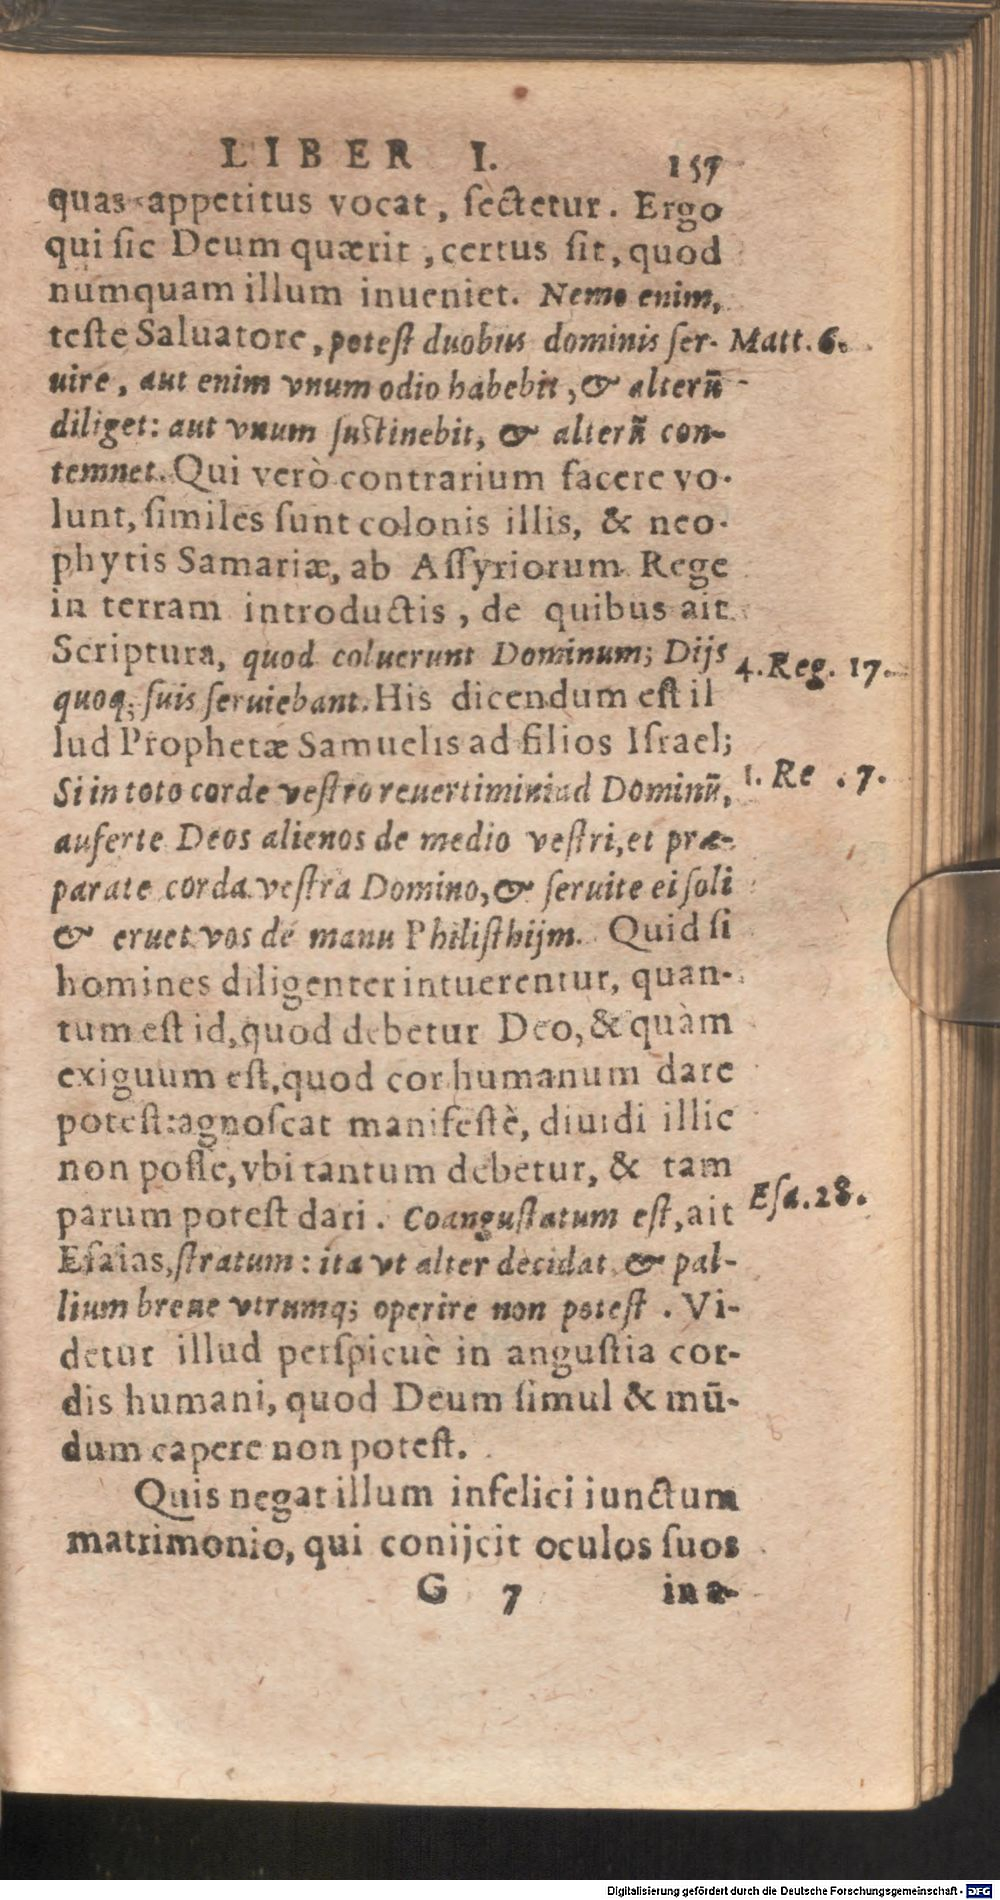 LIBER I. 157
quas appetitus vocat, ſectetur. Ergo
qui ſic Deum quærit, certus ſit, quod
numquam illum inueniet. Nemo enim,
teſte Saluatore, poteſt duobus dominis ſer- Matt. 6.
uire, aut enim vnum odio habebit, & alterū
diliget: aut vnum ſuſtinebit, & alterū con-
temnet. Qui verò contrarium facere vo-
lunt, ſimiles ſunt colonis illis, & neo-
phytis Samariæ, ab Aſſyriorum Rege
in terram introductis, de quibus ait
Scriptura, quod coluerunt Dominum; Dijs 4. Reg. 17.
quoq; ſuis ſeruiebant. His dicendum eſt il
lud Prophetæ Samuelis ad filios Iſrael;
Si in toto corde veſtro reuertimini ad Dominū, 1. Re . 7.
auferte Deos alienos de medio veſtri, et præ-
parate corda veſtra Domino, & ſeruite ei ſoli
& eruet vos de manu Philiſthijm. Quid ſi
homines diligenter intuerentur, quan-
tum eſt id, quod debetur Deo, & quàm
exiguum eſt, quod cor humanum dare
poteſt: agnoſcat manifeſtè, diuidi illic
non poſſe, vbi tantum debetur, & tam
parum poteſt dari. Coanguſtatum eſt, ait Eſa. 28.
Eſaias, ſtratum: ita vt alter decidat & pal-
lium breue vtrumq; operire non poteſt. Vi-
detur illud perſpicuè in anguſtia cor-
dis humani, quod Deum ſimul & mū-
dum capere non poteſt.
Quis negat illum infelici iunctum
matrimonio, qui conijcit oculos ſuos
G 7 in a-
Digitalisierung gefördert durch die Deutsche Forschungsgemeinschaft - DFG